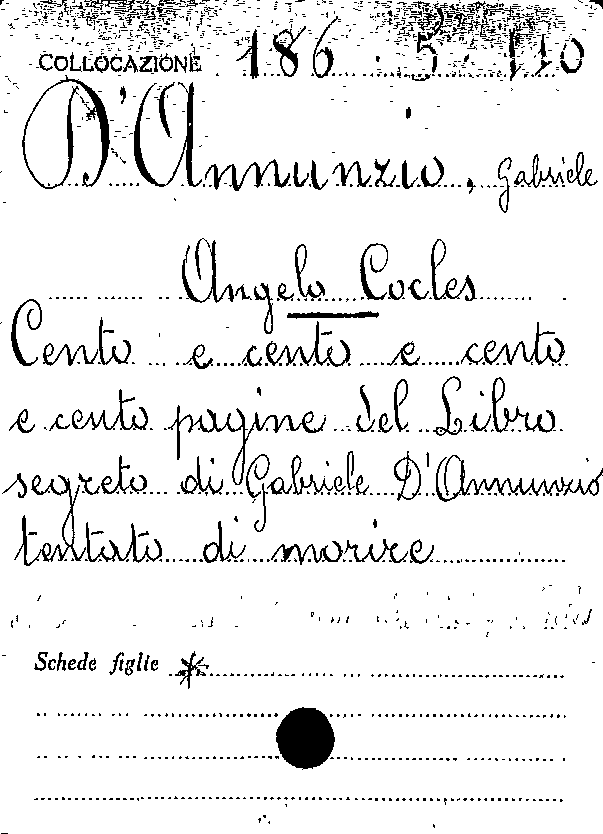 COLLOCAZIONE 186.5.110
D'Annunzio, Gabriele
Angelo Cocles
Cento e cento e cento
e cento pagine del Libro
segreto di Gabriele D'Annunzio
tentato di morire
Schede figlie *